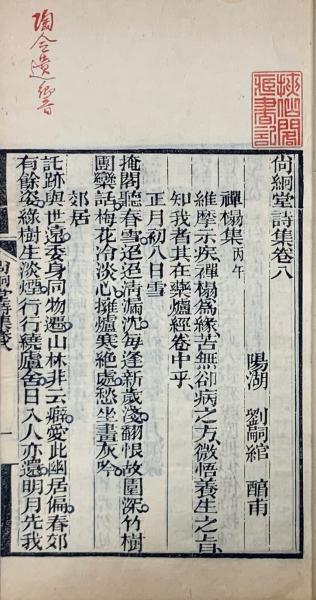 陶令遺響
尚絅堂詩集卷八
陽湖 劉嗣綰 醕甫
禪榻集 丙午
維摩示疾禪榻爲緣苦無卻病之方微悟養生之旨
知我者其在藥爐經卷中乎
正月初八日雪
掩閣聽春雪迢迢清漏沈每逢新歲淺翻恨故園深竹樹
團欒話梅花冷淡心擁爐寒絕處愁坐畫灰吟
郊居
託跡與世遠委身同物遷山林非云癖愛此幽居偏春郊
有餘姿綠樹生淡煙行行繞廬舍日入人亦還明月先我
尚絅堂詩集卷八